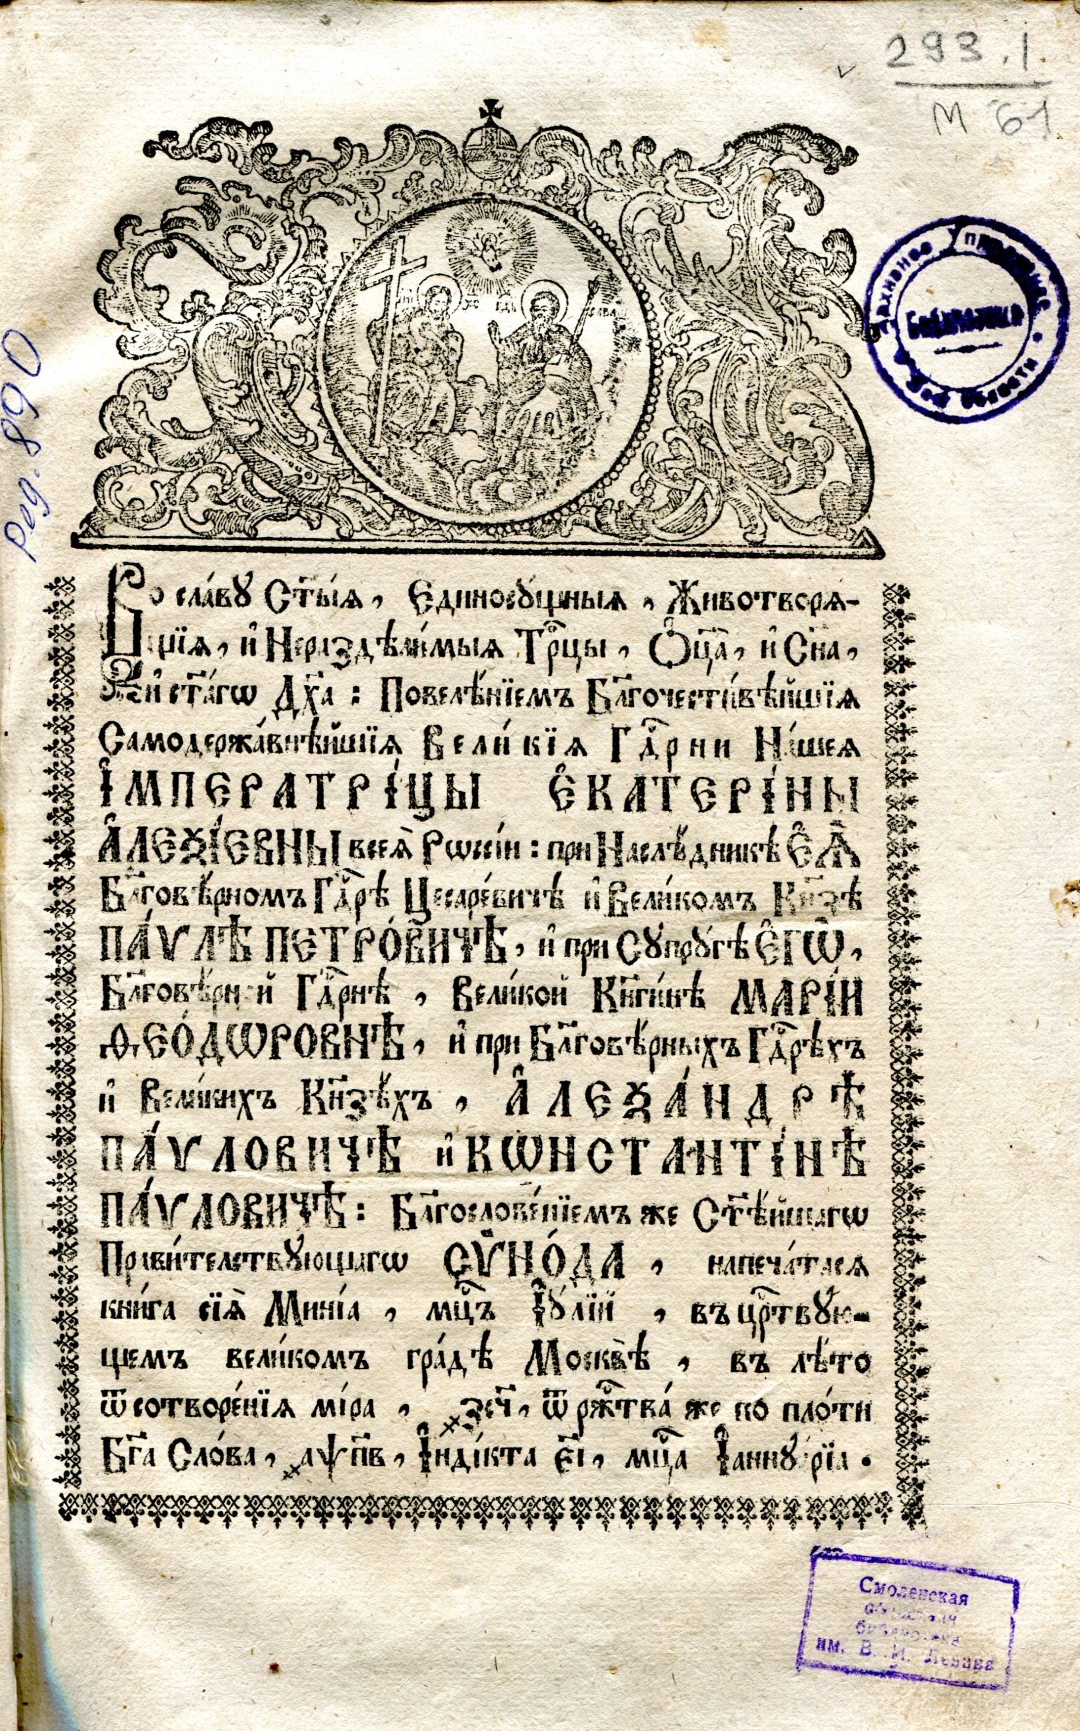 293.1
М 61
Архивное
Библиотека
области
Рид. 890
Во сла́вꙋ Ст҃ы́ѧ, Єдиносꙋ́щныѧ, Животворѧ́-
щїѧ, и҆ Нераздѣли́мыѧ Трⷪ҇цы, Ѻ҆ц҃а̀, и҆ Сн҃а,
и҆ ст҃а́гѡ Дх҃а : Повелѣ́нїемъ Бл҃гочести́вѣйшїѧ
Самодержа́внѣйшїѧ Вели́кїѧ Гдⷭ҇рни На́шеѧ
І҆МПЕРАТРІ́ЦЫ Є҆КАТЕРІ́НЫ
А҆ЛЕѮІ́ЕВНЫ всеѧ̀ Рѡссі́и : при Наслѣ́дникѣ Є҆Ѧ̀
Бл҃говѣ́рномъ Гдⷭ҇рѣ Цесаре́вичѣ и҆ Вели́комъ Кн҃зѣ
ПА́ѴЛѢ ПЕТРО́ВИЧѢ, и҆ при Сꙋпрꙋ́гѣ Є҆ГѠ̀,
Бл҃говѣ́рной Гдⷭ҇рнѣ , Вели́кой Кн҃ги́нѣ МАРІ́И
Ѳ҆ЕО́ДѠРОВНѢ, и҆ при Бл҃говѣ́рныхъ Гдⷭ҇рѣхъ
и҆ Вели́кихъ Кн҃зѣхъ , А҆ЛЕѮА́НДРѢ
ПА́ѴЛОВИЧѢ и҆ КѠНСТАНТІ́НѢ
ПА́ѴЛОВИЧѢ : Бл҃гослове́нїемъ же Ст҃ѣ́йшагѡ
Прави́телствꙋющагѡ СѴНО́ДА , напеча́тасѧ
кни́га сїѧ̀ Мині́а , мцⷭ҇ъ І҆ꙋ́лїй , въ црⷭ҇твꙋю-
щемъ вели́комъ гра́дѣ Москвѣ̀ , въ лѣ́то
ѿ сотворе́нїѧ мі́ра , ҂зсч҃, ѿ ржⷭ҇тва́ же по пло́ти
Бг҃а Сло́ва, ҂аѱп҃в, І҆нді́кта є҃і, мцⷭ҇а І҆аннꙋа́рїа .
Смоленская
областная
библиотека
им. В. И. Ленина